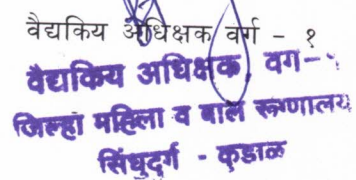 वैद्यकिय अधिक्षक वर्ग - १
वैद्यकिय अधिक्षक वर्ग-१
जिल्हा महिला व बाल रूग्णालय
सिंधुदुर्ग - कुडाळ